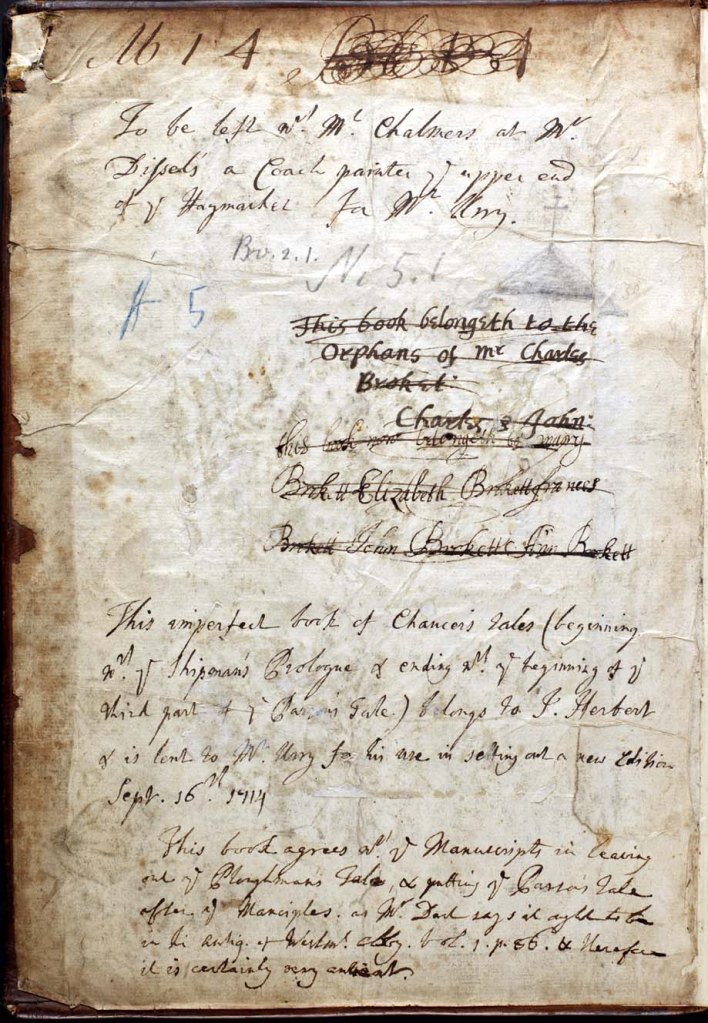 To be left wt. Mr. Chalmers at Mr.
Dissel's a Coach painter ye upper end
of ye Haymarket For Mr. Urry.
Bv. 2. 1.
No 5. 1
A 5
This book belongeth to the
Orphans of mr Charles
Broket:
Charles & John:
this book now belongeth to mary
Brokett Elizabeth Brokett frances
Brokett John Brokett & Ann Brokett
This imperfect book of Chaucer's tales (beginning
wth. ye Shipman's Prologue & ending wth. ye beginning of ye
third part of ye Parson's Tale.) belongs to J. Herbert
& is lent to Mr. Urry for his use in setting out a new Edition
Sept. 16th. 1714
This book agrees wt. ye Manuscripts in leaving
out ye Ploughman's Tale, & putting ye Parson's Tale
after ye Manciples. as Mr. Dart says it ought to be
in his Antiq. of Westmr. Abby. vol. 1. p. 86. & therefore
it is certainly very antient.